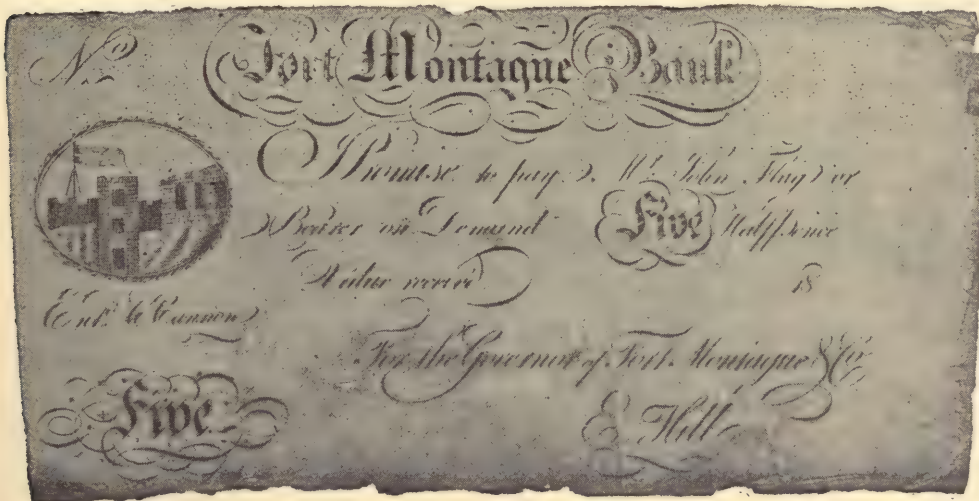 No
Fort Montague Bank
I Promise to pay Mr John Flag or
Bearer on Demand Five Halfpence
Value receivd 18
Entd W Cannon
For the Governor of Fort Montague & Co
Five
E Hill